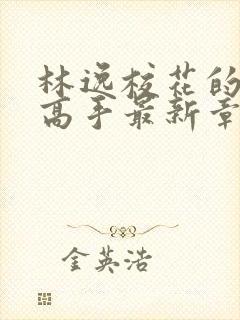 林逸校花的
高手最新章
金英浩